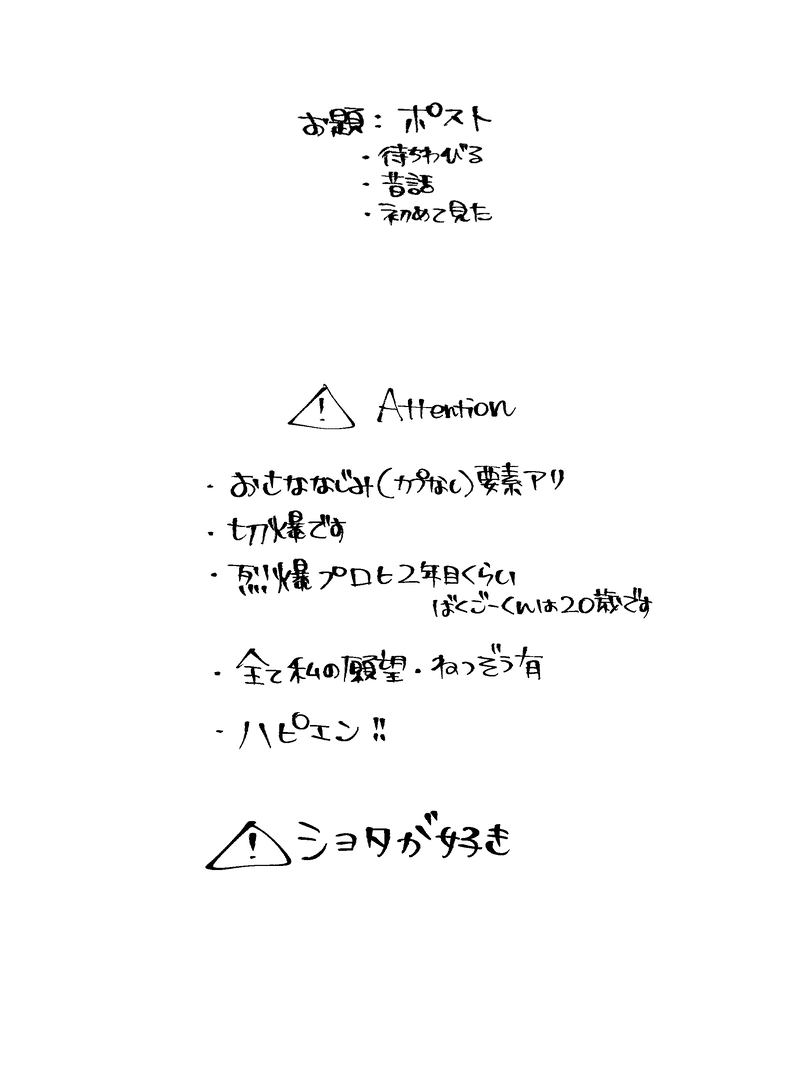 お題：ポスト
・待ちわびる
・昔話
・初めて見た
⚠ Attention
・おさななじみ(カプなし)要素アリ
・切爆です
・烈爆プロヒ2年目くらい
ばくごーくんは20歳です
・全て私の願望・ねつぞう有
・ハピエン!!
⚠ショタが好き